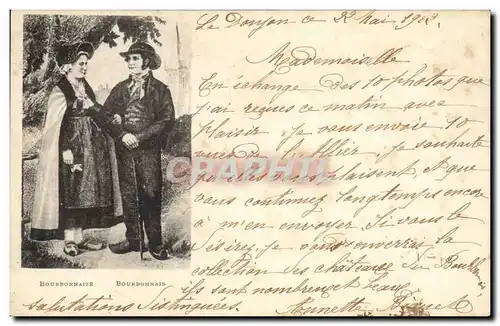 Le Donjon ce 22 Mai 1902,
Mademoiselle
En échange des 10 photos que
j'ai reçues ce matin avec
Plaisir. Je vous envoie 10
vues de l'Allier, Je souhaite
qu'elles vous plaisent et que
vous continuiez longtemps encore
à m'en envoyer Si vous le
désirez, je vous enverrai la
collection des châteaux du Bourbonnais,
ils sont nombreux et beaux.
BOURBONNAISE BOURBONNAIS
salutations distinguées. Annette